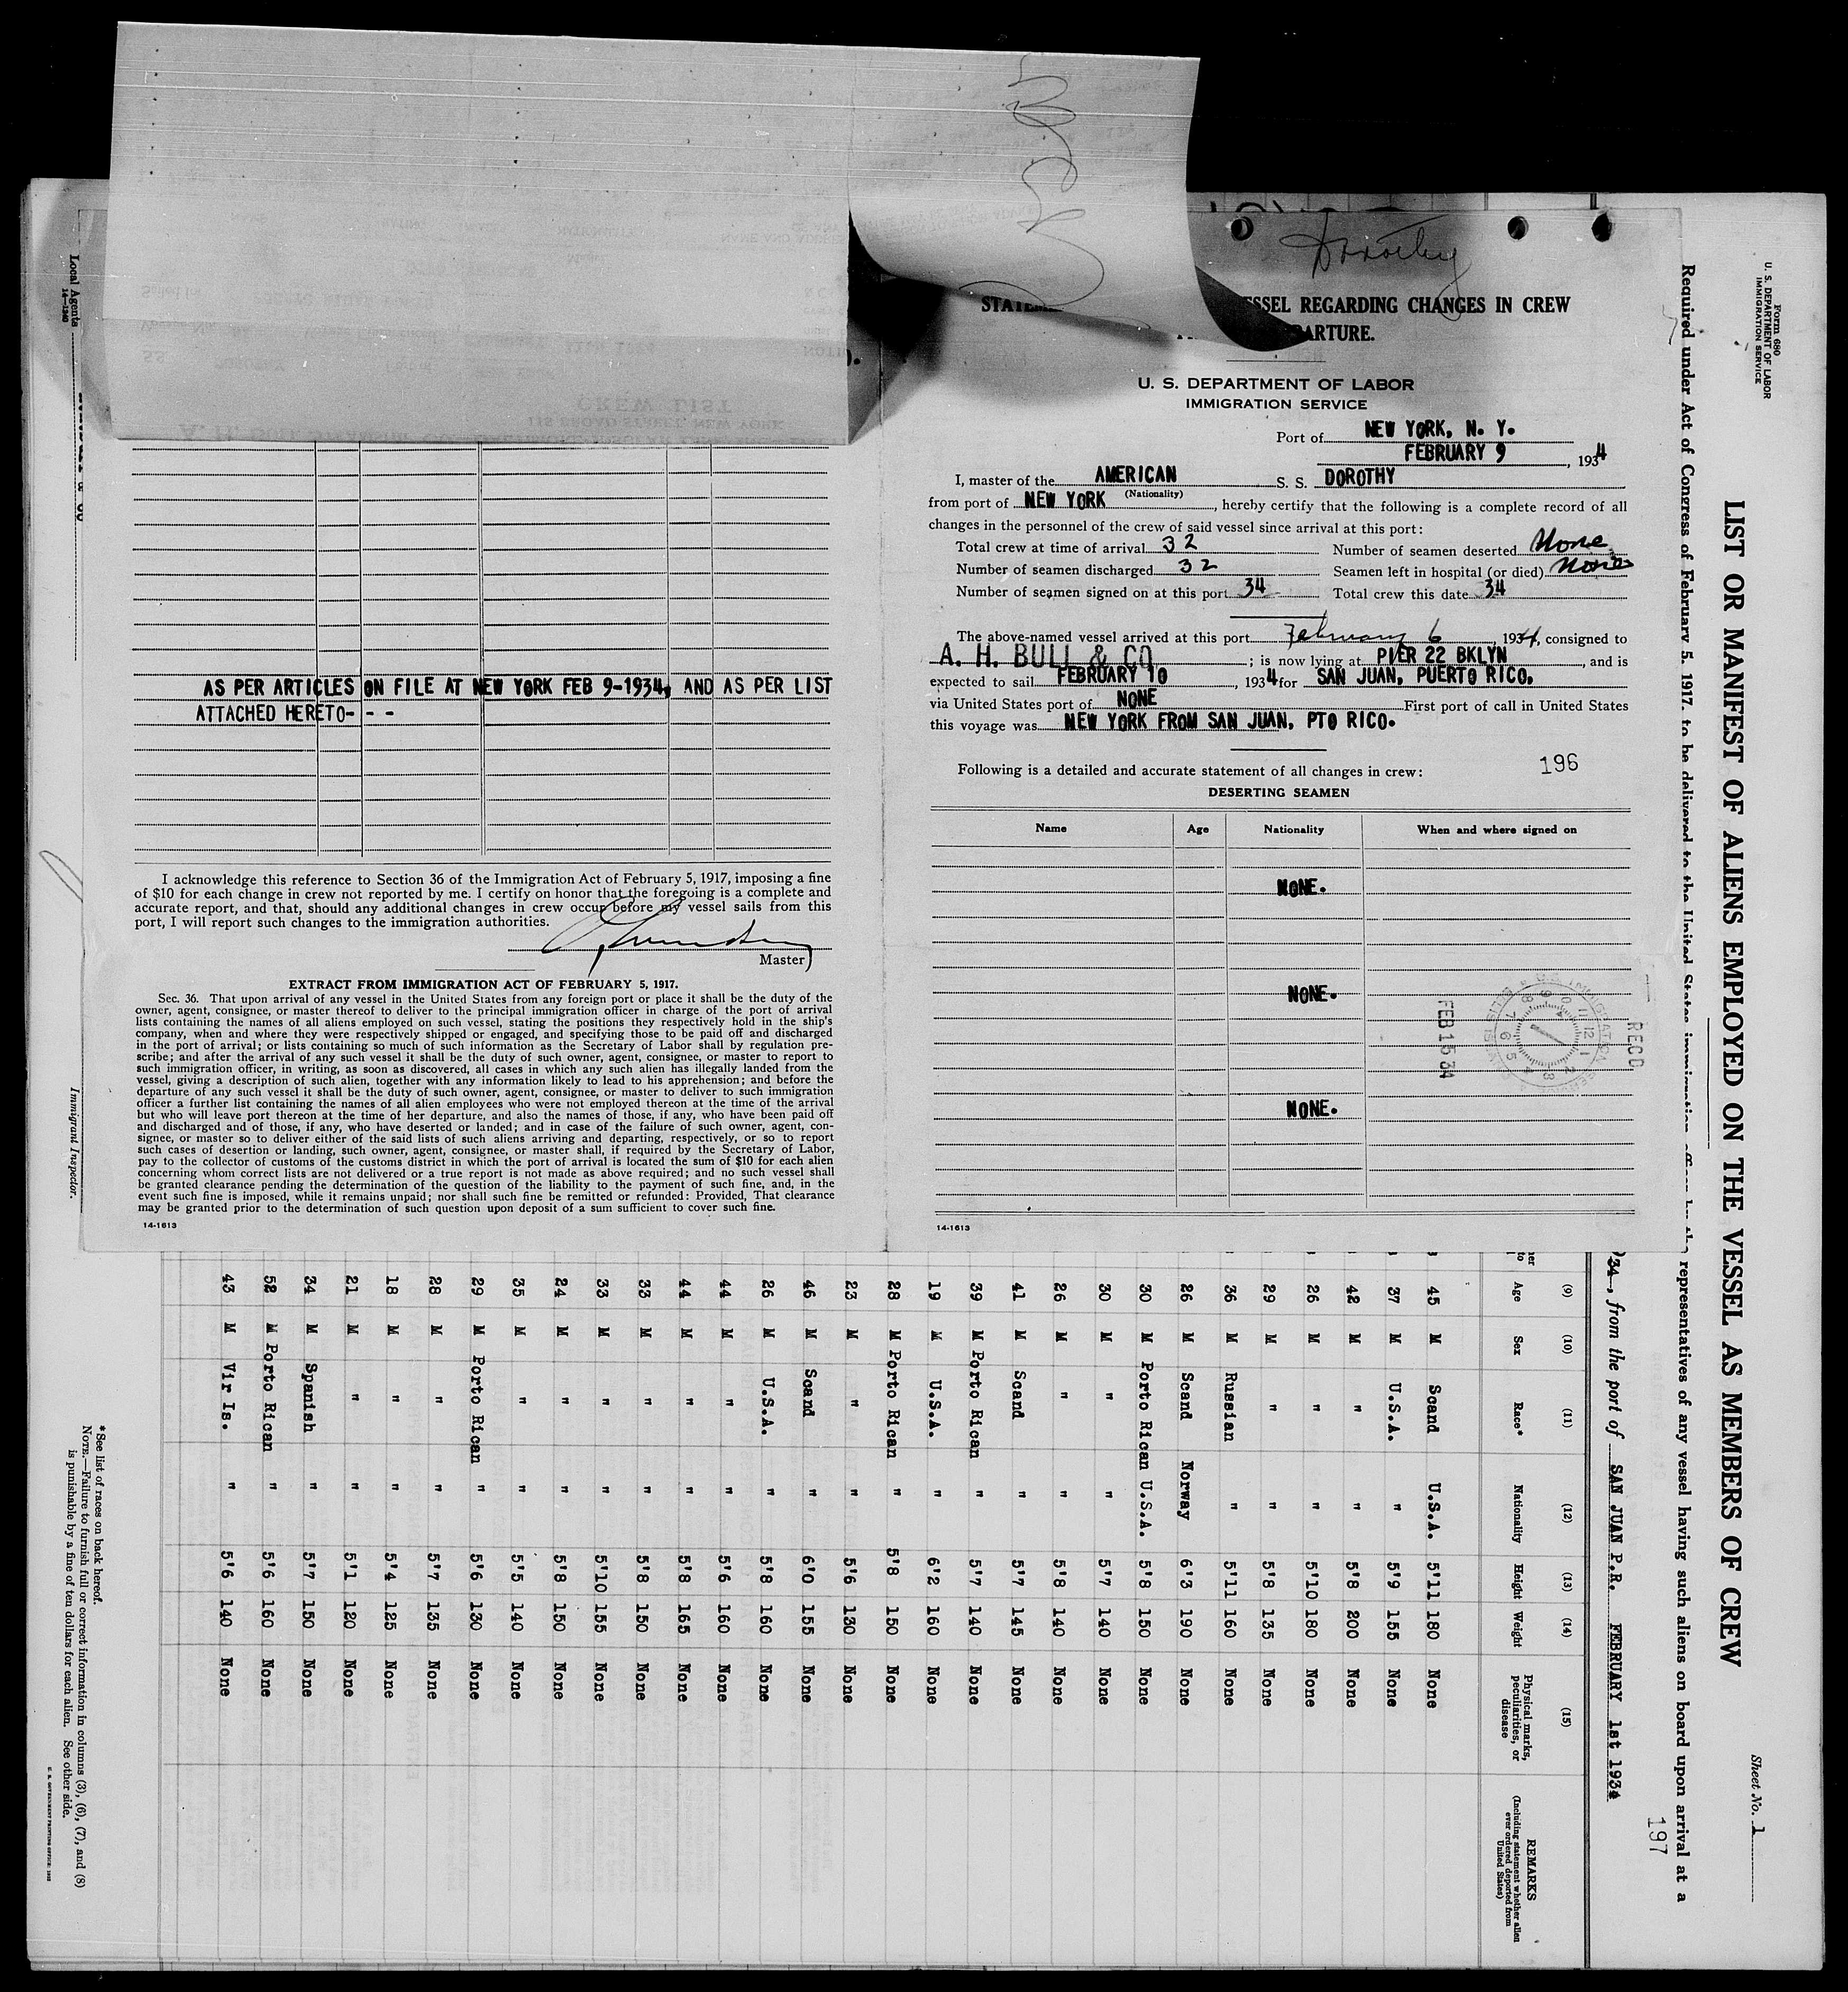 Dorothy
STATEM SSEL REGARDING CHANGES IN CREW
ARTURE.
U. S. DEPARTMENT OF LABOR
IMMIGRATION SERVICE
Port of NEW YORK, N. Y.
FEBRUARY 9, 1934
I, master of the AMERICAN S. S. DOROTHY
(Nationality)
from port of NEW YORK, hereby certify that the following is a complete record of all
changes in the personnel of the crew of said vessel since arrival at this port:
Total crew at time of arrival 32 Number of seamen deserted None
Number of seamen discharged 32 Seamen left in hospital (or died) None
Number of seamen signed on at this port 34 Total crew this date 34
The above-named vessel arrived at this port February 6, 1934, consigned to
A. H. BULL & CO; is now lying at PIER 22 BKLYN, and is
expected to sail FEBRUARY 10, 1934 for SAN JUAN, PUERTO RICO.
via United States port of NONE First port of call in United States
this voyage was NEW YORK FROM SAN JUAN, PTO RICO.
Following is a detailed and accurate statement of all changes in crew: 196
DESERTING SEAMEN
Name Age Nationality When and where signed on
NONE.
NONE.
NONE.
RECD
FEB 15 34
14-1613
CREW LIST
115 BROAD STREET, NEW YORK
AS PER ARTICLES ON FILE AT NEW YORK FEB 9-1934, AND AS PER LIST
ATTACHED HERETO- - -
I acknowledge this reference to Section 36 of the Immigration Act of February 5, 1917, imposing a fine
of $10 for each change in crew not reported by me. I certify on honor that the foregoing is a complete and
accurate report, and that, should any additional changes in crew occur before my vessel sails from this
port, I will report such changes to the immigration authorities.
Master
EXTRACT FROM IMMIGRATION ACT OF FEBRUARY 5, 1917.
Sec. 36. That upon arrival of any vessel in the United States from any foreign port or place it shall be the duty of the
owner, agent, consignee, or master thereof to deliver to the principal immigration officer in charge of the port of arrival
lists containing the names of all aliens employed on such vessel, stating the positions they respectively hold in the ship's
company, when and where they were respectively shipped or engaged, and specifying those to be paid off and discharged
in the port of arrival; or lists containing so much of such information as the Secretary of Labor shall by regulation pre-
scribe; and after the arrival of any such vessel it shall be the duty of such owner, agent, consignee, or master to report to
such immigration officer, in writing, as soon as discovered, all cases in which any such alien has illegally landed from the
vessel, giving a description of such alien, together with any information likely to lead to his apprehension; and before the
departure of any such vessel it shall be the duty of such owner, agent, consignee, or master to deliver to such immigration
officer a further list containing the names of all alien employees who were not employed thereon at the time of the arrival
but who will leave port thereon at the time of her departure, and also the names of those, if any, who have been paid off
and discharged and of those, if any, who have deserted or landed; and in case of the failure of such owner, agent, con-
signee, or master so to deliver either of the said lists of such aliens arriving and departing, respectively, or so to report
such cases of desertion or landing, such owner, agent, consignee, or master shall, if required by the Secretary of Labor,
pay to the collector of customs of the customs district in which the port of arrival is located the sum of $10 for each alien
concerning whom correct lists are not delivered or a true report is not made as above required; and no such vessel shall
be granted clearance pending the determination of the question of the liability to the payment of such fine, and, in the
event such fine is imposed, while it remains unpaid; nor shall such fine be remitted or refunded: Provided, That clearance
may be granted prior to the determination of such question upon deposit of a sum sufficient to cover such fine.
14-1613
Form 680
U. S. DEPARTMENT OF LABOR
IMMIGRATION SERVICE
Sheet No. 1
LIST OR MANIFEST OF ALIENS EMPLOYED ON THE VESSEL AS MEMBERS OF CREW
Required under Act of Congress of February 5, 1917, to be delivered to the United States immigration officer by the representatives of any vessel having such aliens on board upon arrival at a
197
34, from the port of SAN JUAN P.R. FEBRUARY 1st 1934
(9) (10) (11) (12) (13) (14) (15)
Age Sex Race* Nationality Height Weight Physical marks, peculiarities, or disease REMARKS
(Including statement whether alien ever ordered deported from United States)
45 M Scand U.S.A. 5'11 180 None
37 M U.S.A. " 5'9 155 None
42 M " " 5'8 200 None
26 M " " 5'10 180 None
29 M " " 5'8 135 None
36 M Russian " 5'11 160 None
26 M Scand Norway 6'3 190 None
30 M Porto Rican U.S.A. 5'8 150 None
30 M " " 5'7 140 None
26 M " " 5'8 140 None
41 M Scand " 5'7 145 None
39 M Porto Rican " 5'7 140 None
19 M U.S.A. " 6'2 160 None
28 M Porto Rican " 5'8 150 None
23 M " " 5'6 130 None
46 M Scand " 6'0 155 None
26 M U.S.A. " 5'8 160 None
44 M " " 5'6 160 None
44 M " " 5'8 165 None
33 M " " 5'8 150 None
33 M " " 5'10 155 None
24 M " " 5'8 150 None
35 M " " 5'5 140 None
29 M Porto Rican " 5'6 130 None
28 M " " 5'7 135 None
18 M " " 5'4 125 None
21 M " " 5'1 120 None
34 M Spanish " 5'7 150 None
52 M Porto Rican " 5'6 160 None
43 M Vir Is. " 5'6 140 None
* See list of races on back hereof.
NOTE.—Failure to furnish full or correct information in columns (3), (6), (7), and (8)
is punishable by a fine of ten dollars for each alien. See other side.
Local Agents
14-1240
Immigrant Inspector.